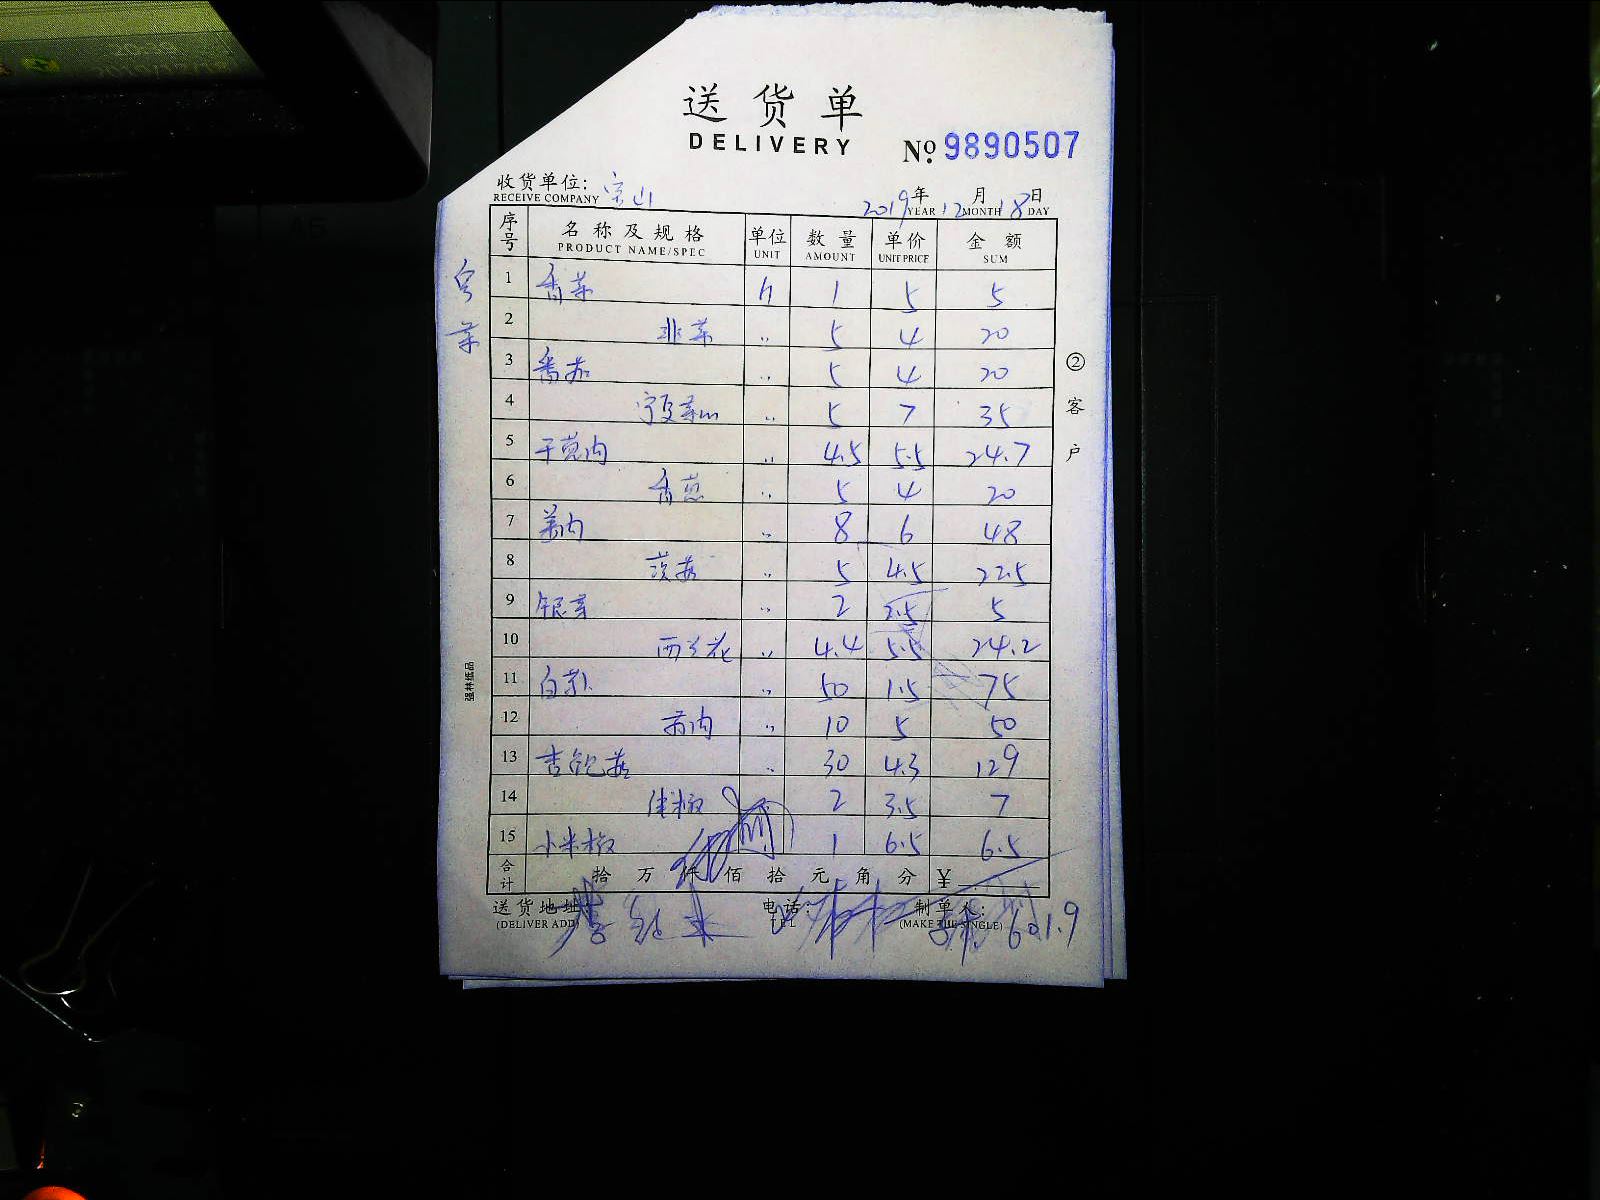 20:39
送货单
DELIVERY
№ 9890507
收货单位: 宗山
RECEIVE COMPANY
2019年12月18日
YEAR MONTH DAY
序号 名称及规格 单位 数量 单价 金额
PRODUCT NAME/SPEC UNIT AMOUNT UNIT PRICE SUM
1 香菜 斤 1 5 5
2 韭菜 〃 5 4 20
3 番茄 〃 5 4 20
4 宁夏菜心 〃 5 7 35
5 〃 4.5 5.5 24.7
6 香葱 〃 5 4 20
7 〃 8 6 48
8 茨菇 〃 5 4.5 22.5
9 银芽 〃 2 2.5 5
10 西兰花 〃 4.4 5.5 24.2
11 白萝卜 〃 50 1.5 75
12 〃 10 5 50
13 杏鲍菇 〃 30 4.3 129
14 〃 2 3.5 7
15 小米椒 1 6.5 6.5
合计 拾 万 仟 佰 拾 元 角 分 ¥
送货地址 电话: 制单人:
(DELIVER ADD) TEL (MAKE THE SINGLE)
601.9
②客户
强林纸品